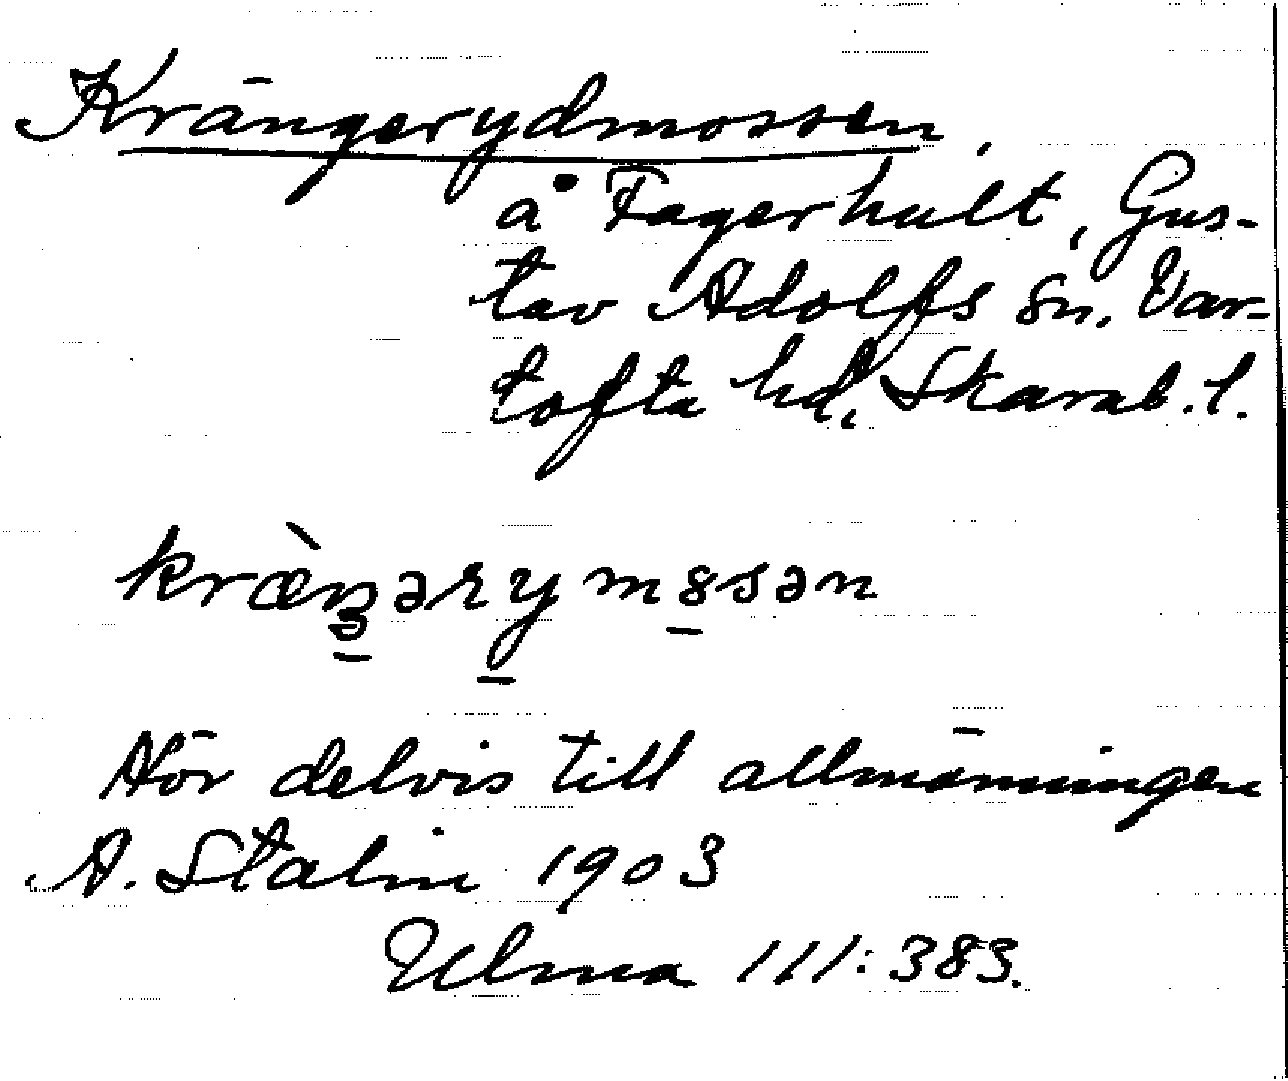 Krängerydmossen,
å Fagerhult, Gus-
tav Adolfs sn, Var-
tofta hd, Skarab. l.
kræ̀ŋərymɵsən
Hör delvis till allmänningen
A. Stalin 1903
Ulma 111:383.